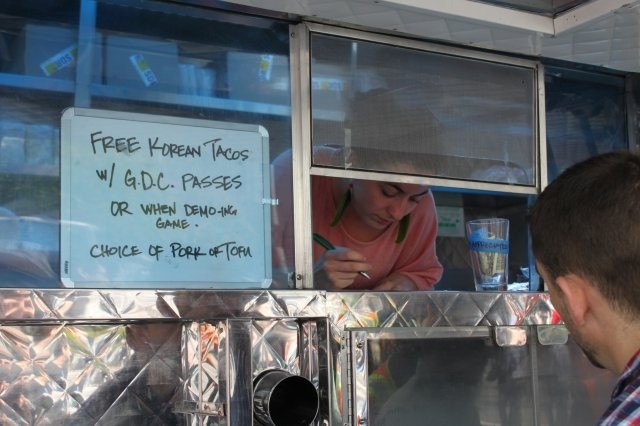 FREE KOREAN TACOS
W/ G.D.C. PASSES
OR WHEN DEMO-ING
GAME.
CHOICE OF PORK OR TOFU